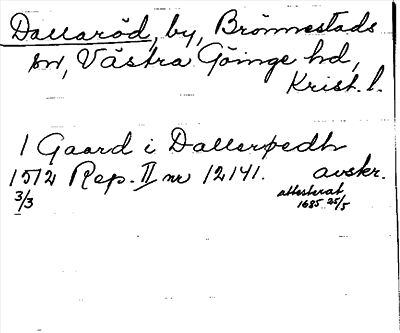 Dallaröd, by, Brönnestads
sn, Västra Göinge hd,
Krist. l.
1 Gaard i Dallerpedh
1512 Rep. II nr 12141. avskr.
3/3 attesterat
1685 25/5